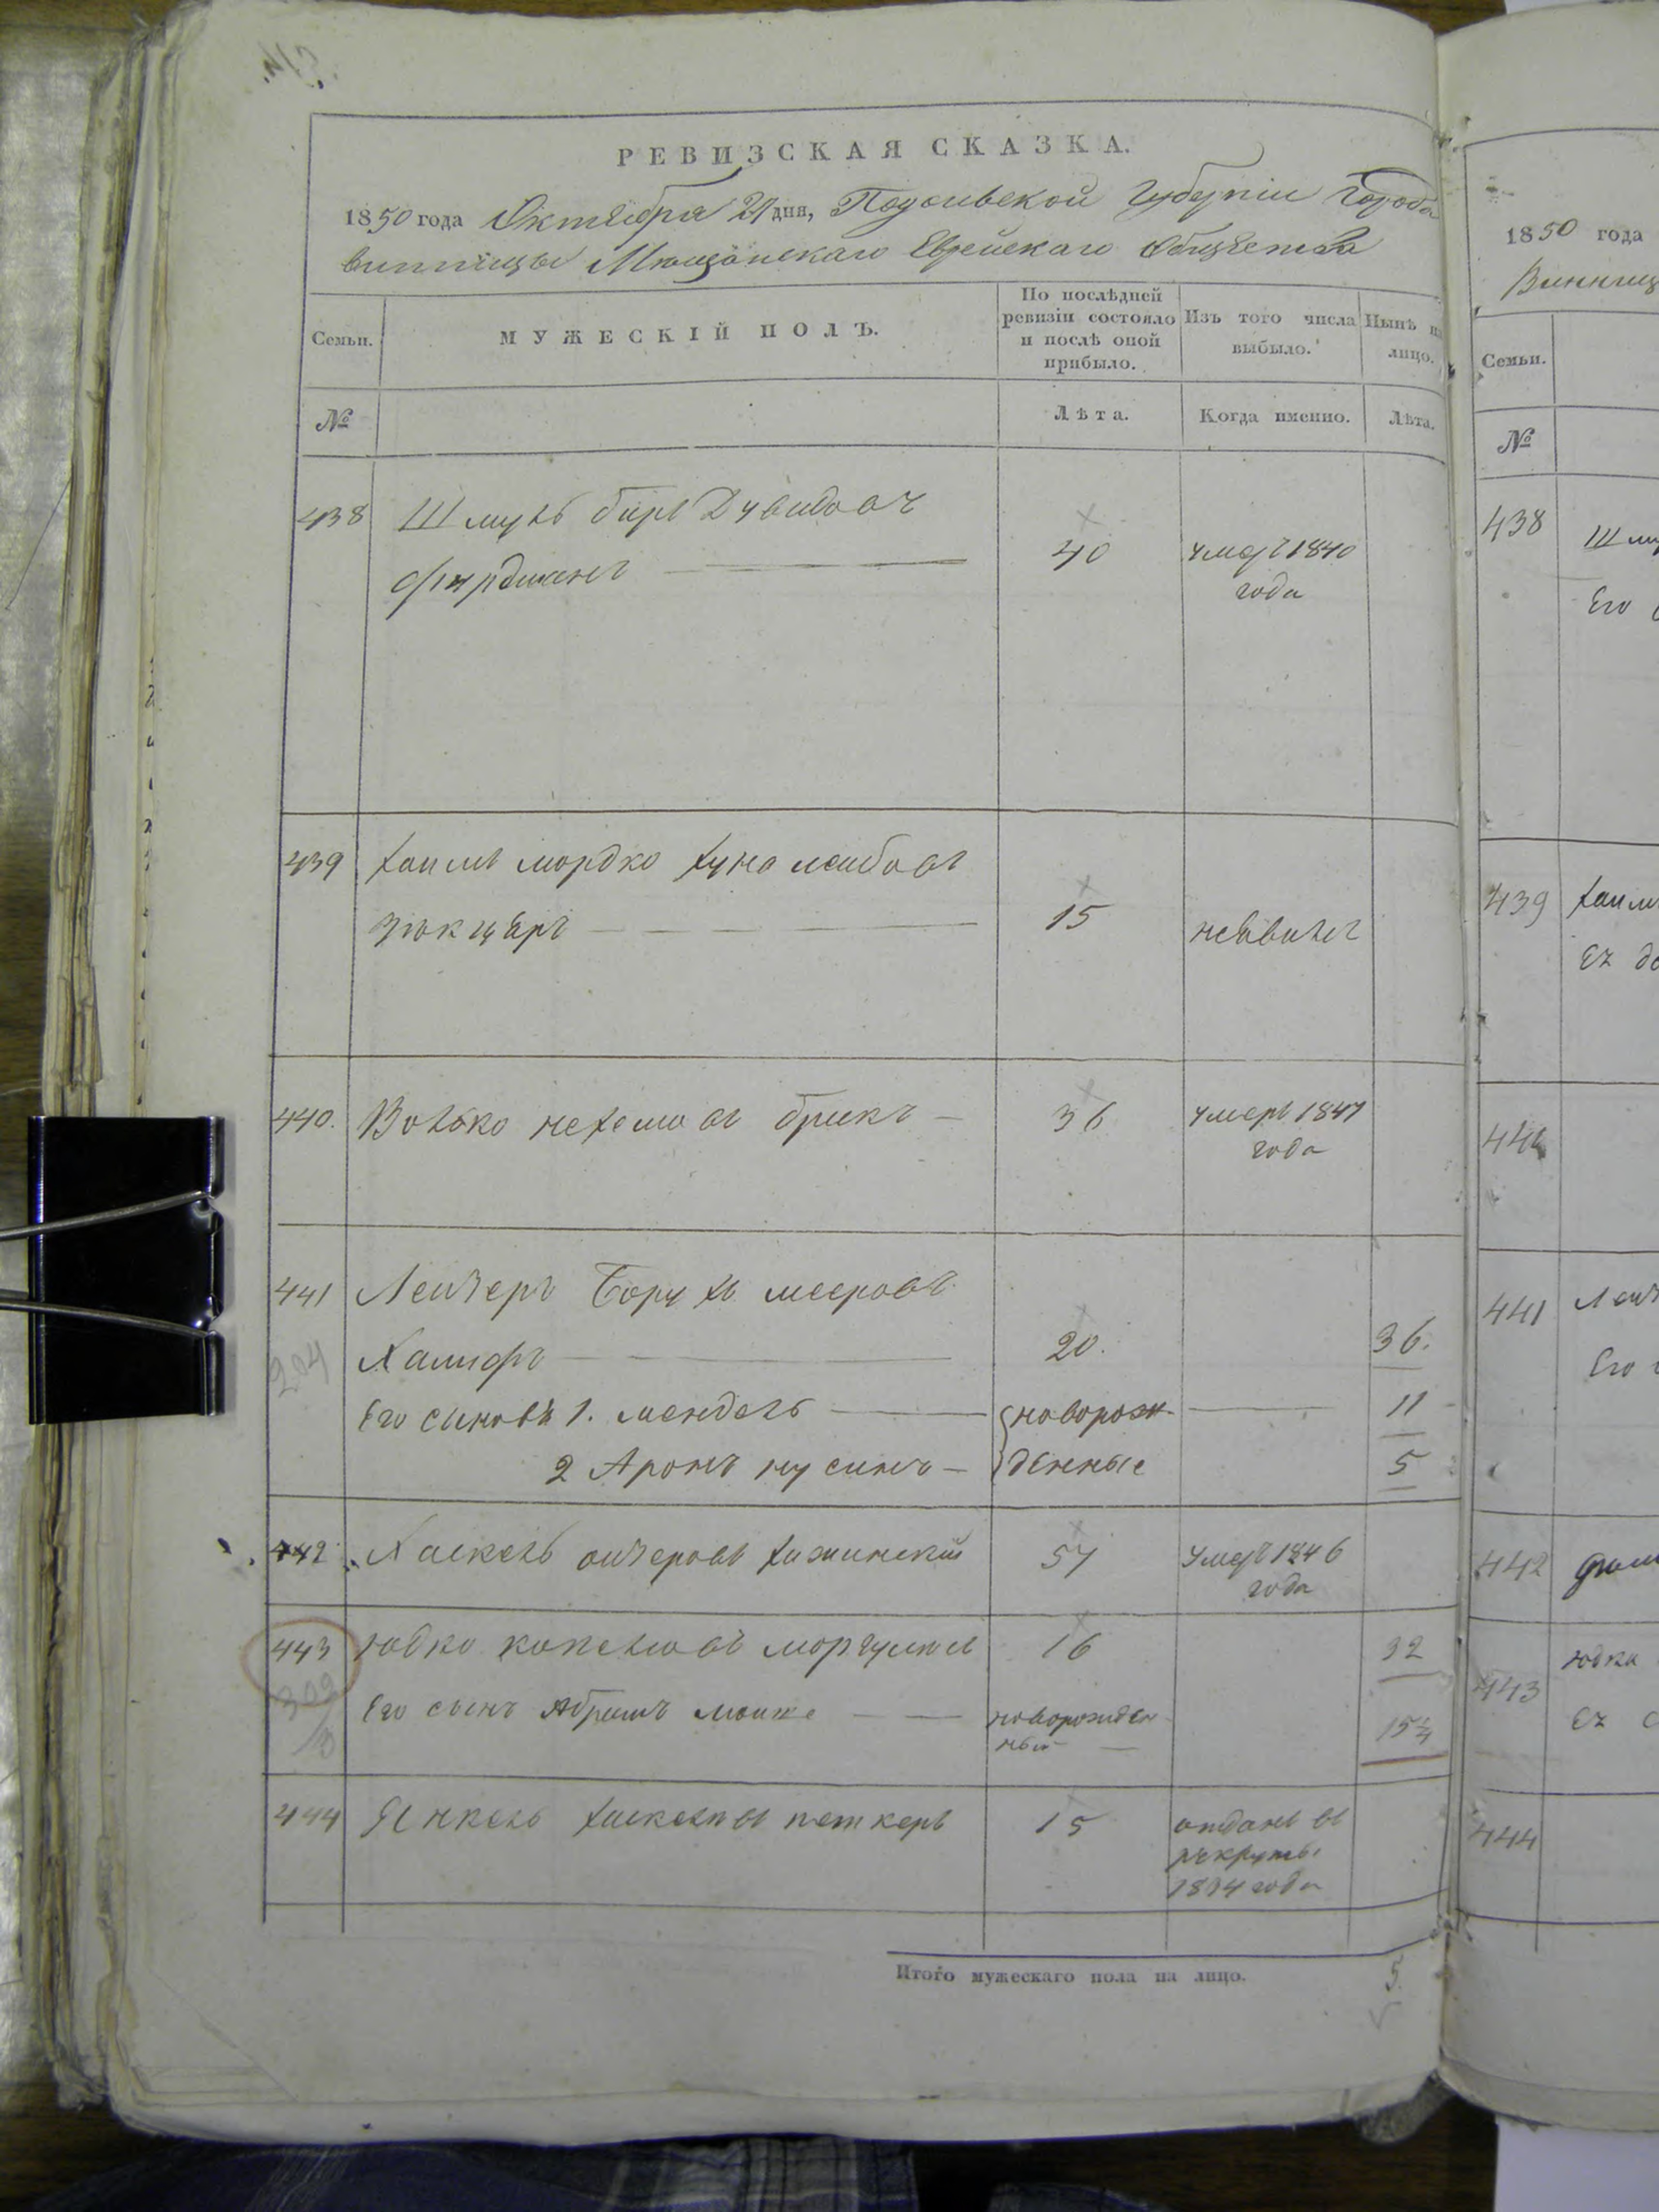 РЕВИЗСКАЯ СКАЗКА.
1850 года Октября 21 дня, Подольской Губерніи Города
Винницы Мѣщанскаго Еврейскаго Общества
Семьи.
МУЖЕСКІЙ ПОЛЪ.
По послѣдней ревизіи состояло и послѣ оной прибыло.
Изъ того числа выбыло.
Нынѣ на лицо.
№
Лѣта.
Когда именно.
Лѣта.
438 Шмуль Беръ Дувидовъ
Фурдманъ 40 умеръ 1840
года
439 Хаимъ Мордко Хуна Лейбовъ
15 неявилъ
440. Волько Нехемовъ Брикъ 36 умеръ 1847
года
441 Лейзеръ Борухъ Мееровъ
Халифъ 20. 36.
Его сыновья 1. Мендель новорож- 11
2 Аронъ Нусинъ денные 5
204
442 Хаскель Ойзеровъ Хижинскій 54 умеръ 1846
года
443 Юдко Копелiовъ Моргулисъ 16 32
Его сынъ Абрамъ Мошке новорожден 15¼
ный
309
444 Янкель Хаскелевъ Петкеръ 15 отданъ въ
рекруты
1844 года
Итого мужескаго пола на лицо. 5.
1850 года
Винниц
Семьи.
№
438 Шму
Его
439 Хаим
Ея до
440
441 Лейз
Его
442
443 Юдки
Ея с
444